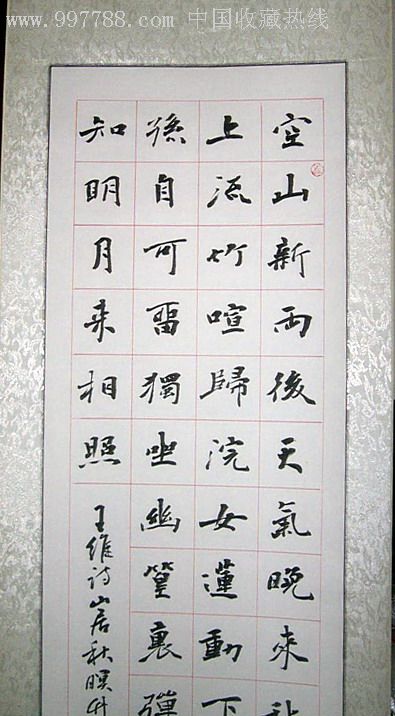 www.997788.com 中国收藏热线
空山新雨後天氣晚來
上流竹喧歸浣女蓮動下
孫自可留獨坐幽篁裏彈
知明月来相照
王維詩山居秋暝竹